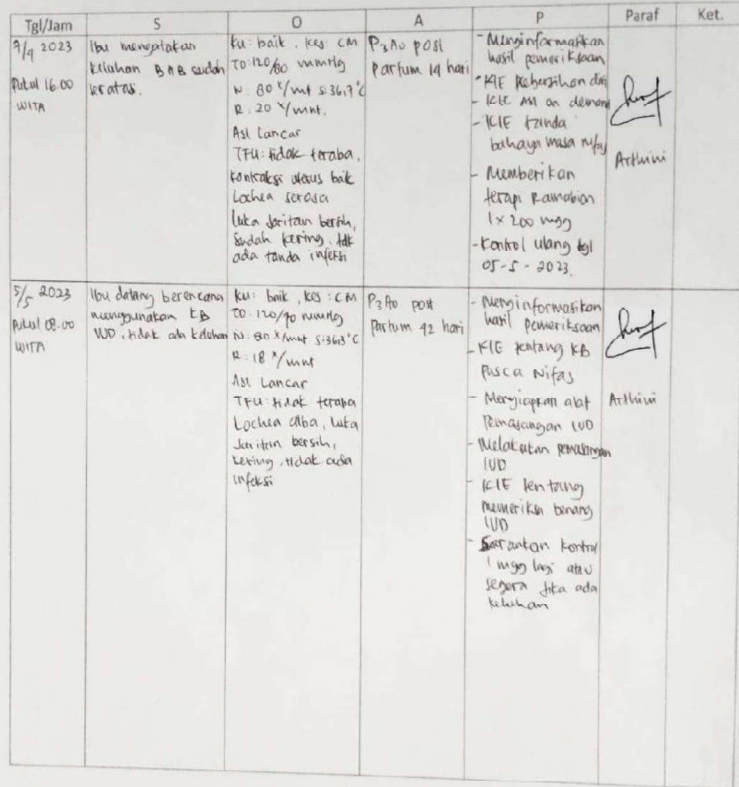 Tgl/Jam
S
O
A
P
Paraf
Ket.
7/4 2023
Pukul 16.00
WITA
Ibu mengatakan
keluhan BAB sudah
teratasi.
Ku: baik, Kes: CM
TD: 120/80 mmHg
N: 80 x/mt S: 36,7°C
R: 20 x/mnt.
Asi Lancar
TFU: tidak teraba,
kontraksi uterus baik
Lochea serosa
luka jaritan bersih,
sudah kering, tdk
ada tanda infeksi
P3A0 post
Partum 14 hari
- Menginformasikan
hasil pemeriksaan
- KIE kebersihan diri
- KIE ASI on demand
- KIE tanda
bahaya masa nifas
- Memberikan
terapi Ramabion
1x200 mg
- Kontrol ulang tgl
05-5-2023.
Arthini
5/5 2023
Pukul 08.00
WITA
Ibu datang berencana
menggunakan KB
IUD, tidak ada keluhan
Ku: baik, Kes: CM
TD: 120/90 mmHg
N: 80 x/mnt S: 36,3°C
R: 18 x/mnt
Asi Lancar
TFU: tidak teraba
Lochea alba, luka
Jaritan bersih,
kering, tidak ada
infeksi
P3A0 post
Partum 42 hari
- Menginformasikan
hasil pemeriksaan
- KIE tentang KB
Pasca Nifas
- Menyiapkan alat
Pemasangan IUD
- Melakukan pemasangan
IUD
- KIE tentang
memeriksa benang
IUD
- Sarankan kontrol
1 mgg lagi atau
segera jika ada
keluhan
Arthini